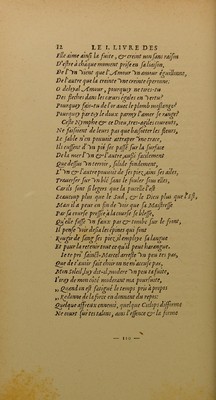 12 LE I. LIVRE DES
Elle aime ainsi la fuite, & creint non sans raison
D'estre à chaque moment prise en sa liaison,
De l'un vient que l'Amour un amour éguillonne,
De l'autre que la creinte une creinte éperonne.
O deloyal Amour, pourquoy ne tires-tu
Des fleches dans les cœurs égales en vertu?
Pourquoy fais-tu de l'or avec le plomb meslange?
Pourquoy par toy le duis parmy l'amer se range?
Ceste Nymphe & ce Dieu, tous egales courants,
Ne faisoient de leurs pas que baisotter les fleurs,
Le sable n'en pouvoit attraper une trace,
Ils eussent d'un pié sec passé sur la surface
De la mer l'un & l'autre, aussi facilement
Que dessus un terrein, solide fondement,
L'un & l'autre pouvoit de ses piez, ainsi ses ailes,
Traverser sur un blé sans le fouler sous elles,
Car ils sont si legers que la pucelle l'est
Beaucoup plus que le Sud, & le Dieu plus que l'Est,
Mais il a peur en fin de voir que sa Maistresse
Par sa course pressée à la course se blesse,
Qu'elle fasse un faux pas & tombe sur le front,
Il pense voir desja les épines qui font
Rougir de sang ses piez, il employe sa langue
Et pour la retenir tout ce qu'il peut harangue.
Je te pri' faints-Marcel arreste un peu tes pas,
Que de t'avoir fait choir on ne m'accuse pas,
Mon Soleil, luy dit-il, modere un peu ta fuite,
J'iray de mon côté moderant ma poursuite,
„ Quand on est fatigué le temps pris à propos
„ Redonne de la force en donnant du repos:
Quelque affreux ennemi, quelque Cyclope difforme
Ne court sur tes talons, avec l'essence & la forme
— 110 —